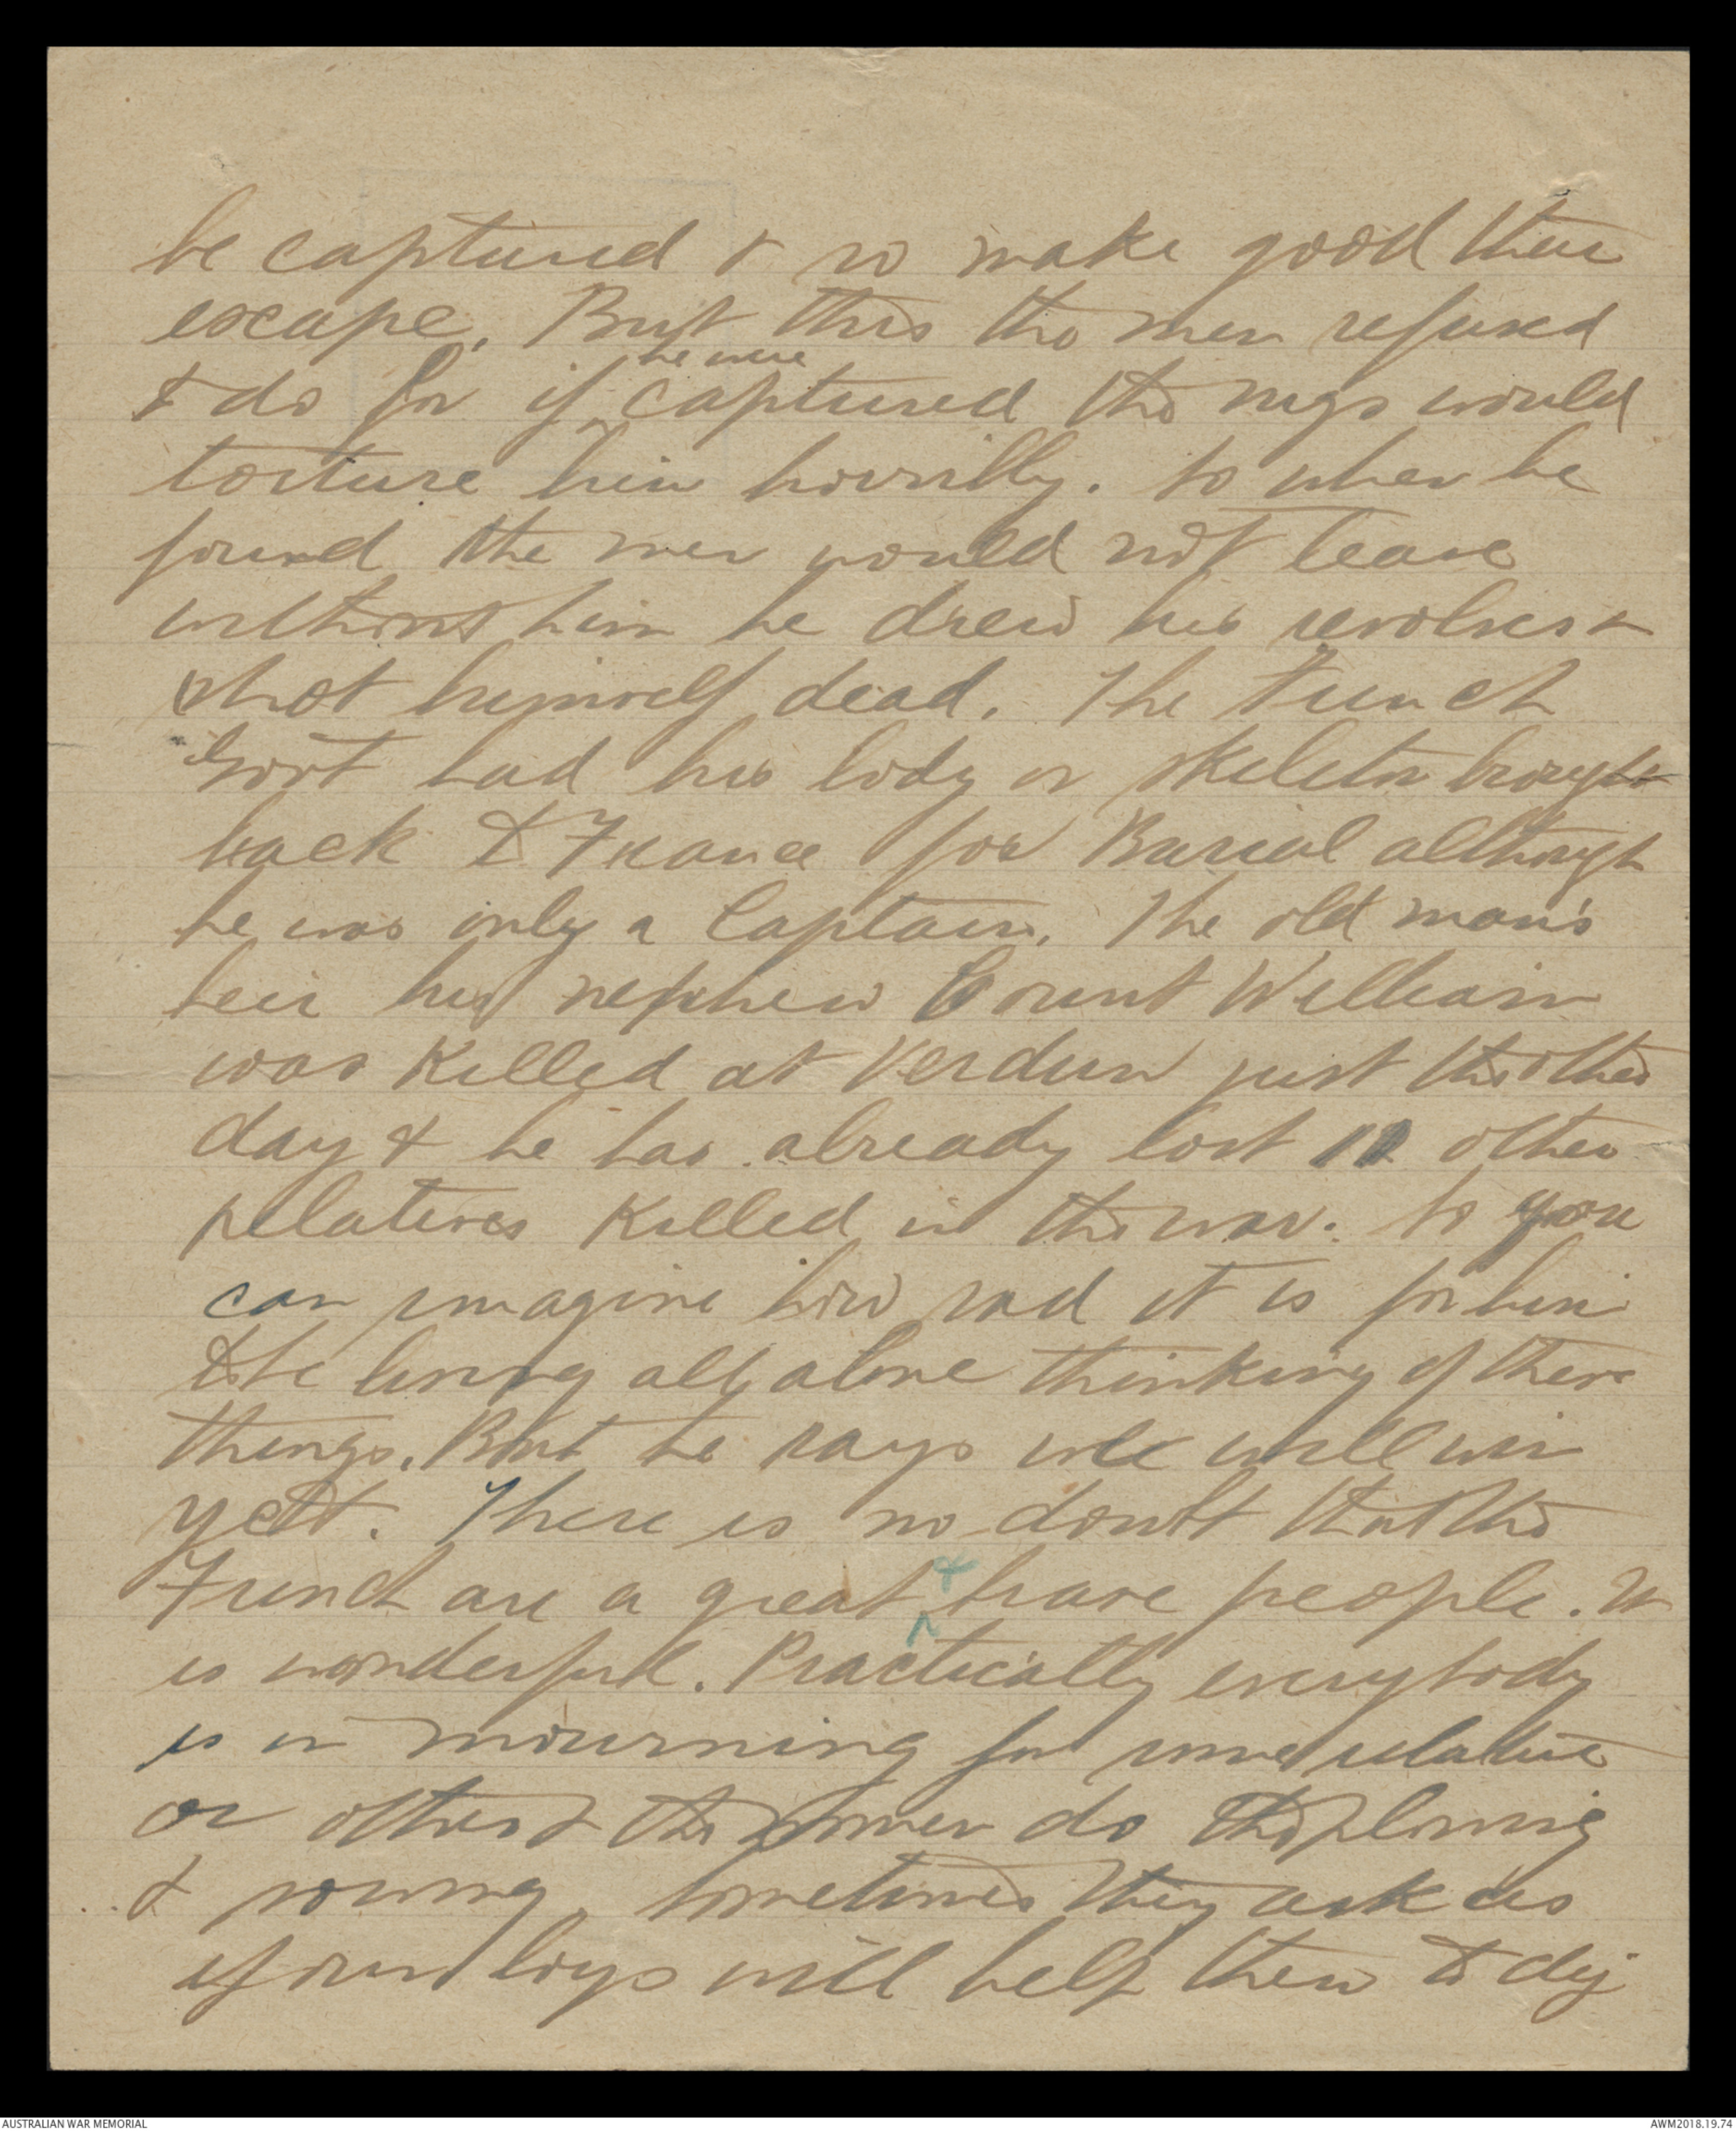 be captured & so make good their
escape. But this the men refused
to do for if he were captured the nigs would
torture him horribly. So when he
found the men would not leave
without him he drew his revolver &
shot himself dead. The French
Govt had his body or skeleton brought
back to France for Burial although
he was only a Captain. The old man's
heir his nephew Count William
was killed at Verdun just the other
day & he has already lost other
relatives killed in the war. So you
can imagine how sad it is for him
to be living all alone thinking of these
things. But he says we will win
yet. There is no doubt that the
French are a great & brave people. It
is wonderful. Practically everybody
is in mourning for some relative
or other & the women do the plowing
& sowing. Sometimes they ask us
if our boys will help them to dig
AUSTRALIAN WAR MEMORIAL
AWM2018.19.74